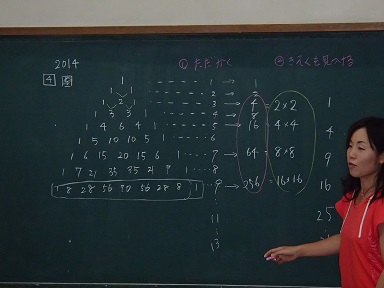 2014
4 算 ① ただ かく ② きそくを見つける
1 ---- 1 → 1
1 1 ---- 2 → 2
1 2 1 ---- 3 → 4 = 2×2 1
1 3 3 1 ---- 4 → 8
1 4 6 4 1 ---- 5 → 16 = 4×4 4
1 5 10 10 5 1 ---- 6
1 6 15 20 15 6 1 ---- 7 → 64 = 8×8 9
1 7 21 35 35 21 7 1 ---- 8
1 8 28 56 70 56 28 8 1 ---- 9 → 256 = 16×16 16
11 25
13